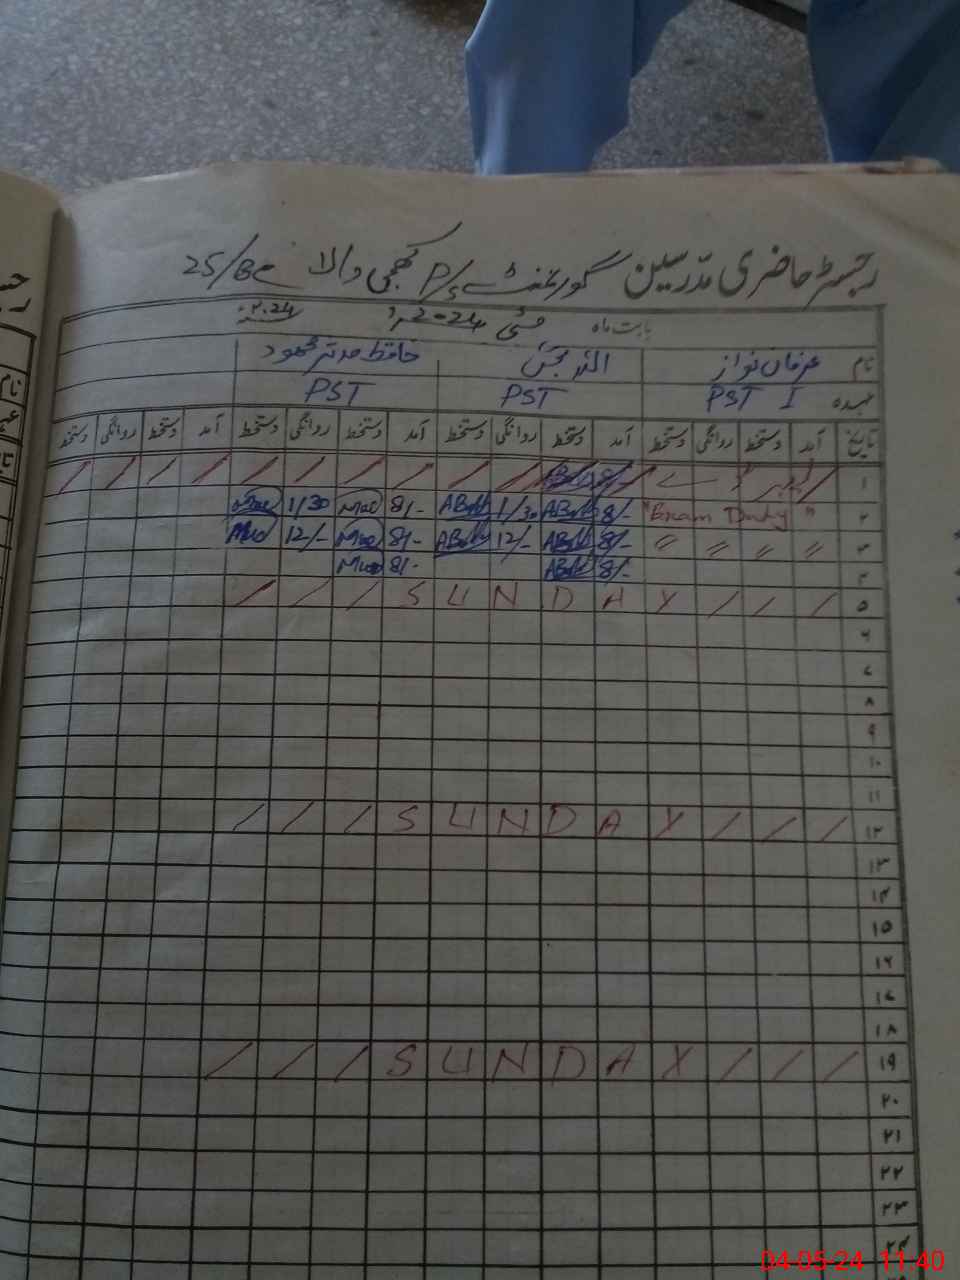 رجسٹر حاضری مدرسین گورنمنٹ P/S کھجی والا 25/B
بابت ماہ مئی 2024
نام عرفان نواز اللہ بخش حافظ مدثر محمود
عہدہ PST I PST PST
تاریخ آمد دستخط روانگی دستخط آمد دستخط روانگی دستخط آمد دستخط روانگی دستخط آمد دستخط روانگی دستخط
۱ 8/-
۲ "Exam Duty" 8/- 1/30 8/- 1/30
۳ 〃 〃 〃 〃 8/- 12/- 8/- 12/-
۴ 8/- 8/-
۵ / / / S U N D A Y / / /
۶
۷
۸
۹
۱۰
۱۱
۱۲ / / / S U N D A Y / / /
۱۳
۱۴
۱۵
۱۶
۱۷
۱۸
۱۹ / / / S U N D A Y / / /
۲۰
۲۱
۲۲
۲۳
۲۴
04-05-24 11:40